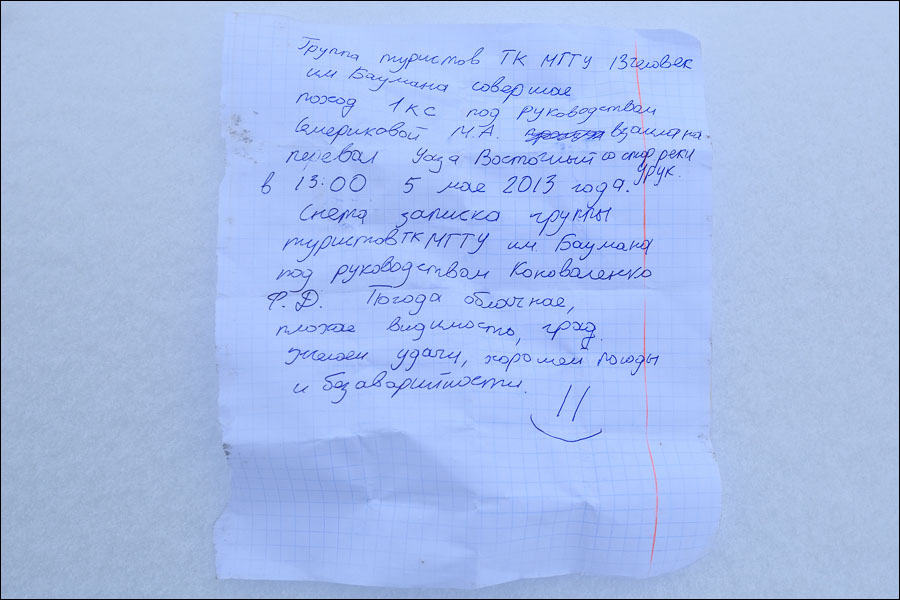 Группа туристов ТК МГТУ 13 человек
им Баумана совершая
поход 1 кс под руководством
Семериковой М.А. взошла на
перевал Уаза Восточный со стор реки
Урук.
в 13:00 5 мая 2013 года.
Снята записка группы
туристов ТК МГТУ им Баумана
под руководством Коноваленко
Ф.Д. Погода облачная,
плохая видимость, град.
Желаем удачи, хорошей погоды
и безаварийности.